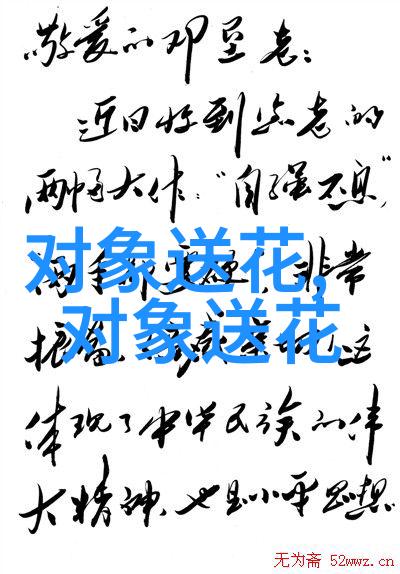 敬爱的邓垦老：
近日收到您老的
两幅大作：“自强不息”
对象送花,
非常
对象送花
振奋
这
体现了中华民族的伟
大精神，也是小平思想
无为斋 52wwz.cn